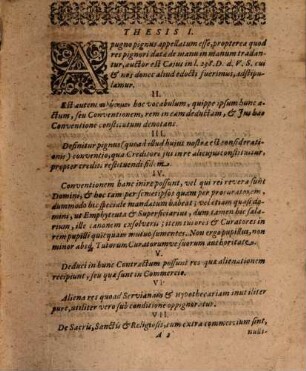 THESIS I.
A pugno pignus appellatum esse, propterea quod
res pignori datæ de manu in manum tradan-
tur, auctor est Caius in l. 238. D. d. V. S. cui
& nos donec aliud edocti fuerimus, adstipu-
lamur.
II.
Est autem hoc vocabulum, quippe ipsum hunc a-
ctum, seu Conventionem, rem in eam deductam, & Jus hac
Conventione constitutum denotans.
III.
Definitur pignus (quoad illud hujus nostræ est considerati-
onis) conventio, qua Creditori jus in re alicujus constituitur,
propter evilis restituendi
IV.
Conventionem hanc interponunt, vel qui res vere sunt
Domini, & hoc tam per semetipsos quam per procuratorem,
dummodo hic speciale mandatum habeat; vel etiam quasi do-
mini, ut Emphyteuta & Superficiarius, dum tamen hic sala-
rium, ille canonem exsolverit: item tutores & Curatores in
rem pupilli quicquam mutuo sumentes. Non ergo pupillus, non
minor absq; Tutorum Curatorumve suorum authoritate.
V.
Deduci in hunc Contractum possunt res quæ alienationem
recipiunt, seu quæ sunt in Commercio.
VI.
Aliena res quoad Servianam & hypothecariam inutiliter
pure, utiliter vero sub conditione oppignoratur.
VII.
De Sacris, Sanctis & Religiosis, cum extra commercium sint,
A 2